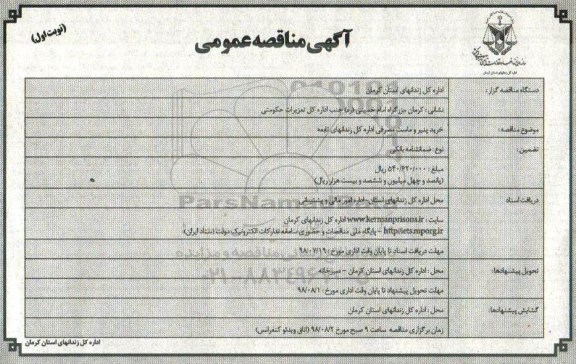 آگهی مناقصه عمومی
(نوبت اول)
اداره کل زندانهای استان کرمان
دستگاه مناقصه گزار: اداره کل زندانهای استان کرمان
نشانی: کرمان بزرگراه امام خمینی (ره) جنب اداره کل تعزیرات حکومتی
موضوع مناقصه: خرید پنیر و ماست مصرفی اداره کل زندانهای تابعه
تضمین: نوع: ضمانتنامه بانکی
مبلغ: ۵۴۰/۶۲۰/۰۰۰ ریال
(پانصد و چهل میلیون و ششصد و بیست هزار ریال)
دریافت اسناد: محل اداره کل زندانهای استان - اداره امور مالی و پشتیبانی
سایت: www.kermanprisons.ir اداره کل زندانهای کرمان
http://iets.mporg.ir - پایگاه ملی مناقصات و حضوری سامانه تدارکات الکترونیک دولت (ستاد ایران)
مهلت دریافت اسناد تا پایان وقت اداری مورخ: ۹۸/۰۷/۱۹
تحویل پیشنهادها: محل: اداره کل زندانهای استان کرمان - دبیرخانه
مهلت تحویل پیشنهاد تا پایان وقت اداری مورخ: ۹۸/۰۸/۱
گشایش پیشنهادها: محل: اداره کل زندانهای استان کرمان
زمان برگزاری مناقصه ساعت ۹ صبح مورخ ۹۸/۰۸/۲ (اتاق ویدئو کنفرانس)
اداره کل زندانهای استان کرمان
ParsNamadData
۰۲۱-۸۸۳۴۹۶